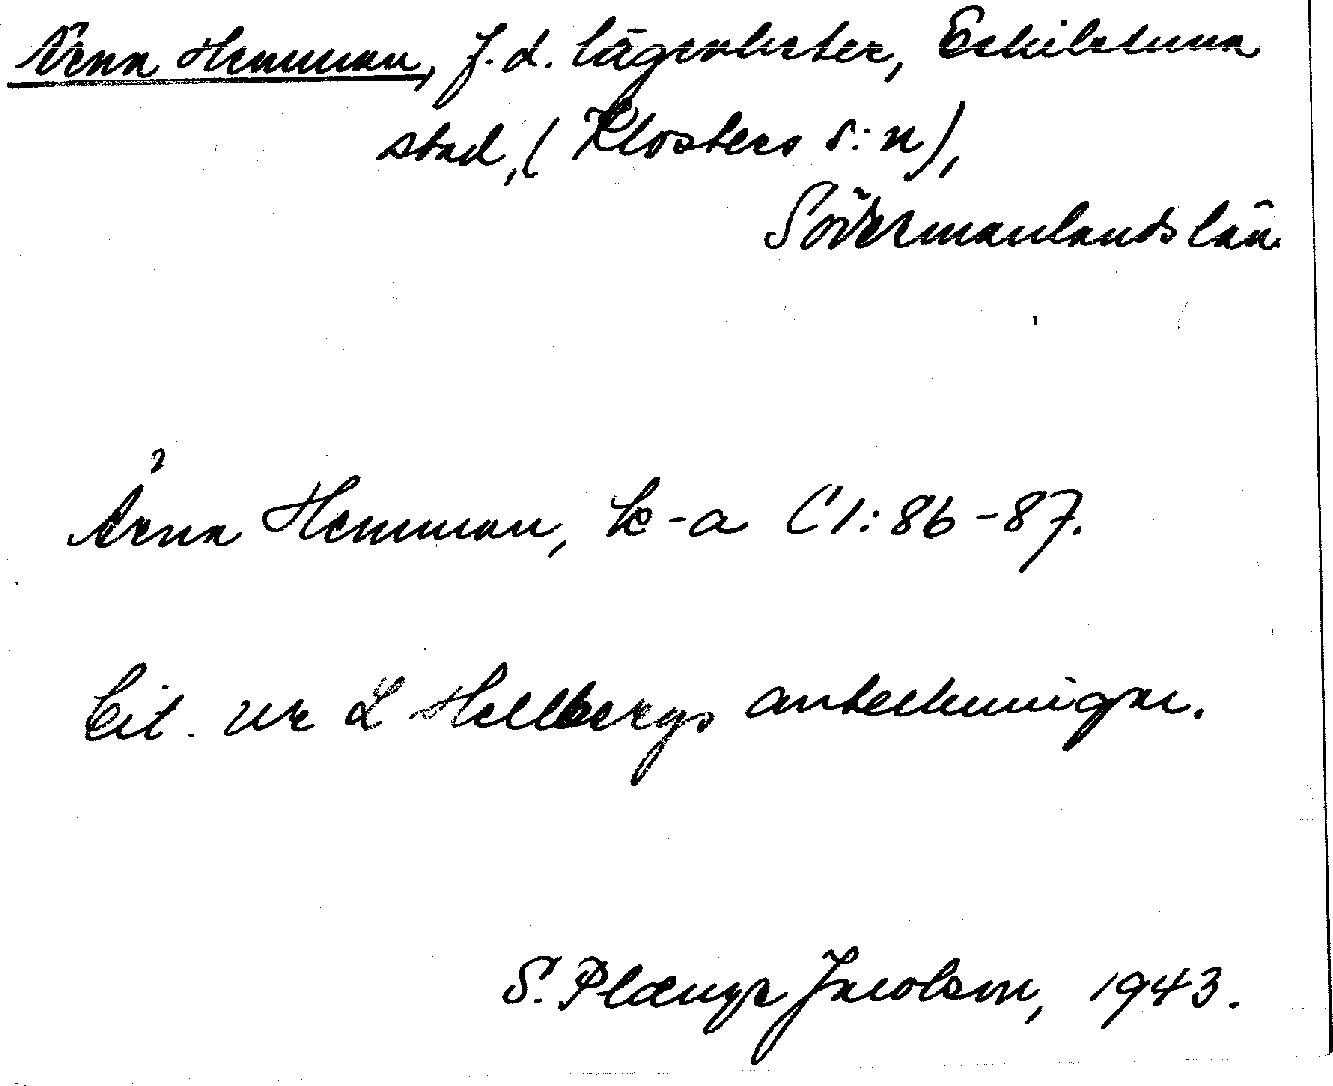 Ärna Hemman, f.d. lägenheter, Eskilstuna
stad, (Klosters s:n),
Södermanlands län.
Ärna Hemman, k-a C1:86-87.
Cit. ur L Hellbergs anteckningar.
S. Plænge Jacobson, 1943.